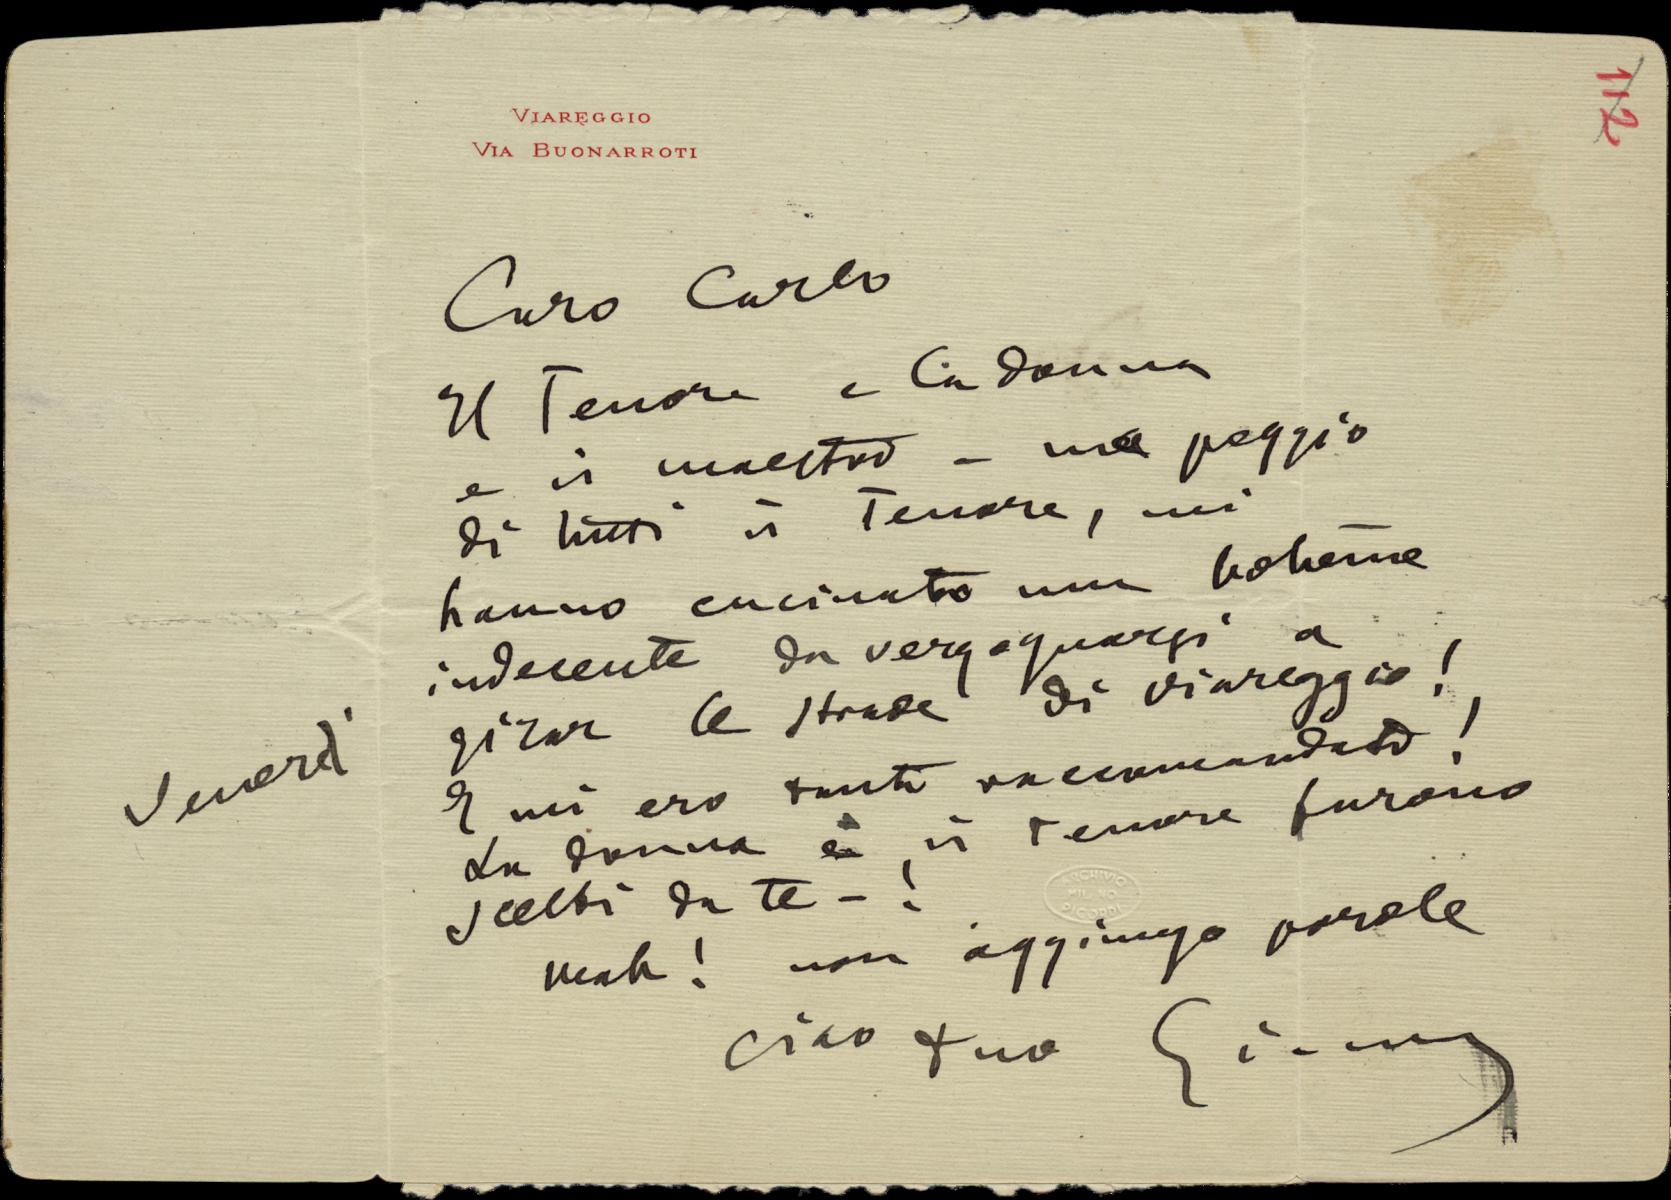 112
VIAREGGIO
VIA BUONARROTI
Caro Carlo
Il Tenore e la donna
e il maestro – ma peggio
di tutti il Tenore, mi
hanno cucinato una bohème
indecente da vergognarsi a
girar le strade di Viareggio!
E mi ero tanto raccomandato!
La donna e il tenore furono
scelti da te – !
mah! non aggiungo parole
ciao tuo
Venerdì
ARCHIVIO
MILANO
RICORDI